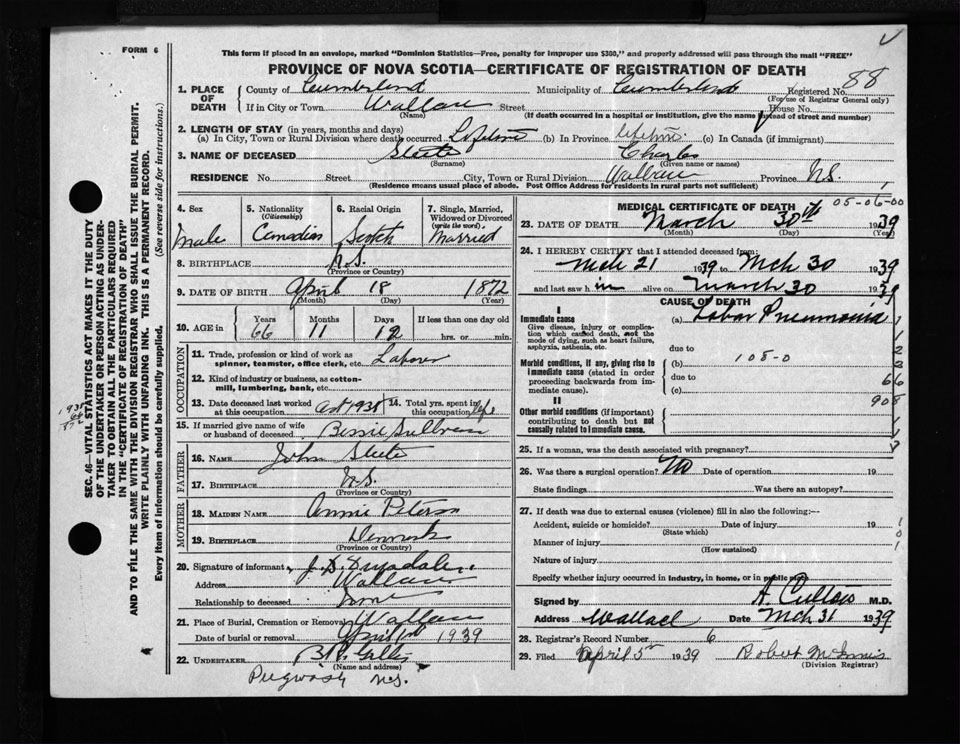 FORM 6
This form if placed in an envelope, marked "Dominion Statistics—Free, penalty for improper use $300," and properly addressed will pass through the mail "FREE"
PROVINCE OF NOVA SCOTIA—CERTIFICATE OF REGISTRATION OF DEATH
88
1. PLACE OF DEATH County of Cumberland Municipality of Cumberland Registered No.
(For use of Registrar General only)
If in City or Town Wallace Street House No.
(Name) (If death occurred in a hospital or institution, give the name instead of street and number)
2. LENGTH OF STAY (in years, months and days)
(a) In City, Town or Rural Division where death occurred Lifetime (b) In Province lifetime (c) In Canada (if immigrant)
3. NAME OF DECEASED Charles
(Surname) (Given name or names)
RESIDENCE No. Street City, Town or Rural Division Wallace Province N.S.
(Residence means usual place of abode. Post Office Address for residents in rural parts not sufficient)
4. Sex 5. Nationality (Citizenship) 6. Racial Origin 7. Single, Married, Widowed or Divorced (write the word)
Male Canadian Scotch Married
8. BIRTHPLACE N.S.
(Province or Country)
9. DATE OF BIRTH April 18 1872
(Month) (Day) (Year)
10. AGE in Years Months Days If less than one day old
66 11 12 hrs. or min.
OCCUPATION
11. Trade, profession or kind of work as spinner, teamster, office clerk, etc. Laborer
12. Kind of industry or business, as cotton-mill, lumbering, bank, etc.
13. Date deceased last worked at this occupation Oct 1938 14. Total yrs. spent in this occupation life
15. If married give name of wife or husband of deceased Bessie Sullivan
FATHER
16. Name John
17. Birthplace N.S.
(Province or Country)
MOTHER
18. Maiden Name Annie Peterson
19. Birthplace Denmark
(Province or Country)
20. Signature of informant
Address Wallace
Relationship to deceased
21. Place of Burial, Cremation or Removal Wallace
Date of burial or removal April 1st 1939
22. Undertaker
(Name and address)
Pugwash N.S.
MEDICAL CERTIFICATE OF DEATH
05-06-00
23. DATE OF DEATH March 30th 1939
(Month) (Day) (Year)
24. I HEREBY CERTIFY that I attended deceased from:
Mch 21 1939 to Mch 30 1939
and last saw him alive on March 30 1939
CAUSE OF DEATH
I
Immediate cause (a) Lobar Pneumonia
Give disease, injury or complication which caused death, not the mode of dying, such as heart failure, asphyxia, asthenia, etc.
due to
Morbid conditions, if any, giving rise to immediate cause (stated in order proceeding backwards from immediate cause). (b) 108-0
due to 66
(c) 908
II
Other morbid conditions (if important) contributing to death but not causally related to immediate cause.
25. If a woman, was the death associated with pregnancy?
26. Was there a surgical operation? No Date of operation 19
State findings Was there an autopsy?
27. If death was due to external causes (violence) fill in also the following:—
Accident, suicide or homicide? Date of injury 19
(State which)
Manner of injury
(How sustained)
Nature of injury
Specify whether injury occurred in industry, in home, or in public place
Signed by M.D.
Address Wallace Date Mch 31 1939
28. Registrar's Record Number 6
29. Filed April 5th 1939 Robert McInnis
(Division Registrar)
SEC. 46—VITAL STATISTICS ACT MAKES IT THE DUTY
OF THE UNDERTAKER OR PERSON ACTING AS UNDER-
TAKER TO OBTAIN ALL THE PARTICULARS REQUIRED
IN THE "CERTIFICATE OF REGISTRATION OF DEATH"
(See reverse side for instructions.)
AND TO FILE THE SAME WITH THE DIVISION REGISTRAR WHO SHALL ISSUE THE BURIAL PERMIT.
WRITE PLAINLY WITH UNFADING INK. THIS IS A PERMANENT RECORD.
Every item of information should be carefully supplied.